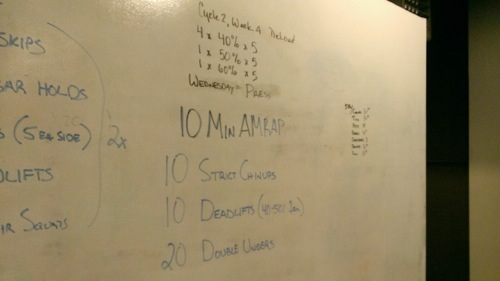 SKIPS
BAR HOLDS
(5 EA SIDE)
2x
SQUATS
Cycle 2, Week 4 Deload
4 x 40% x 5
1 x 50% x 5
1 x 60% x 5
WEDNESDAY- PRESS
10 MIN AMRAP
10 STRICT CHINUPS
10 DEADLIFTS
20 DOUBLE UNDERS